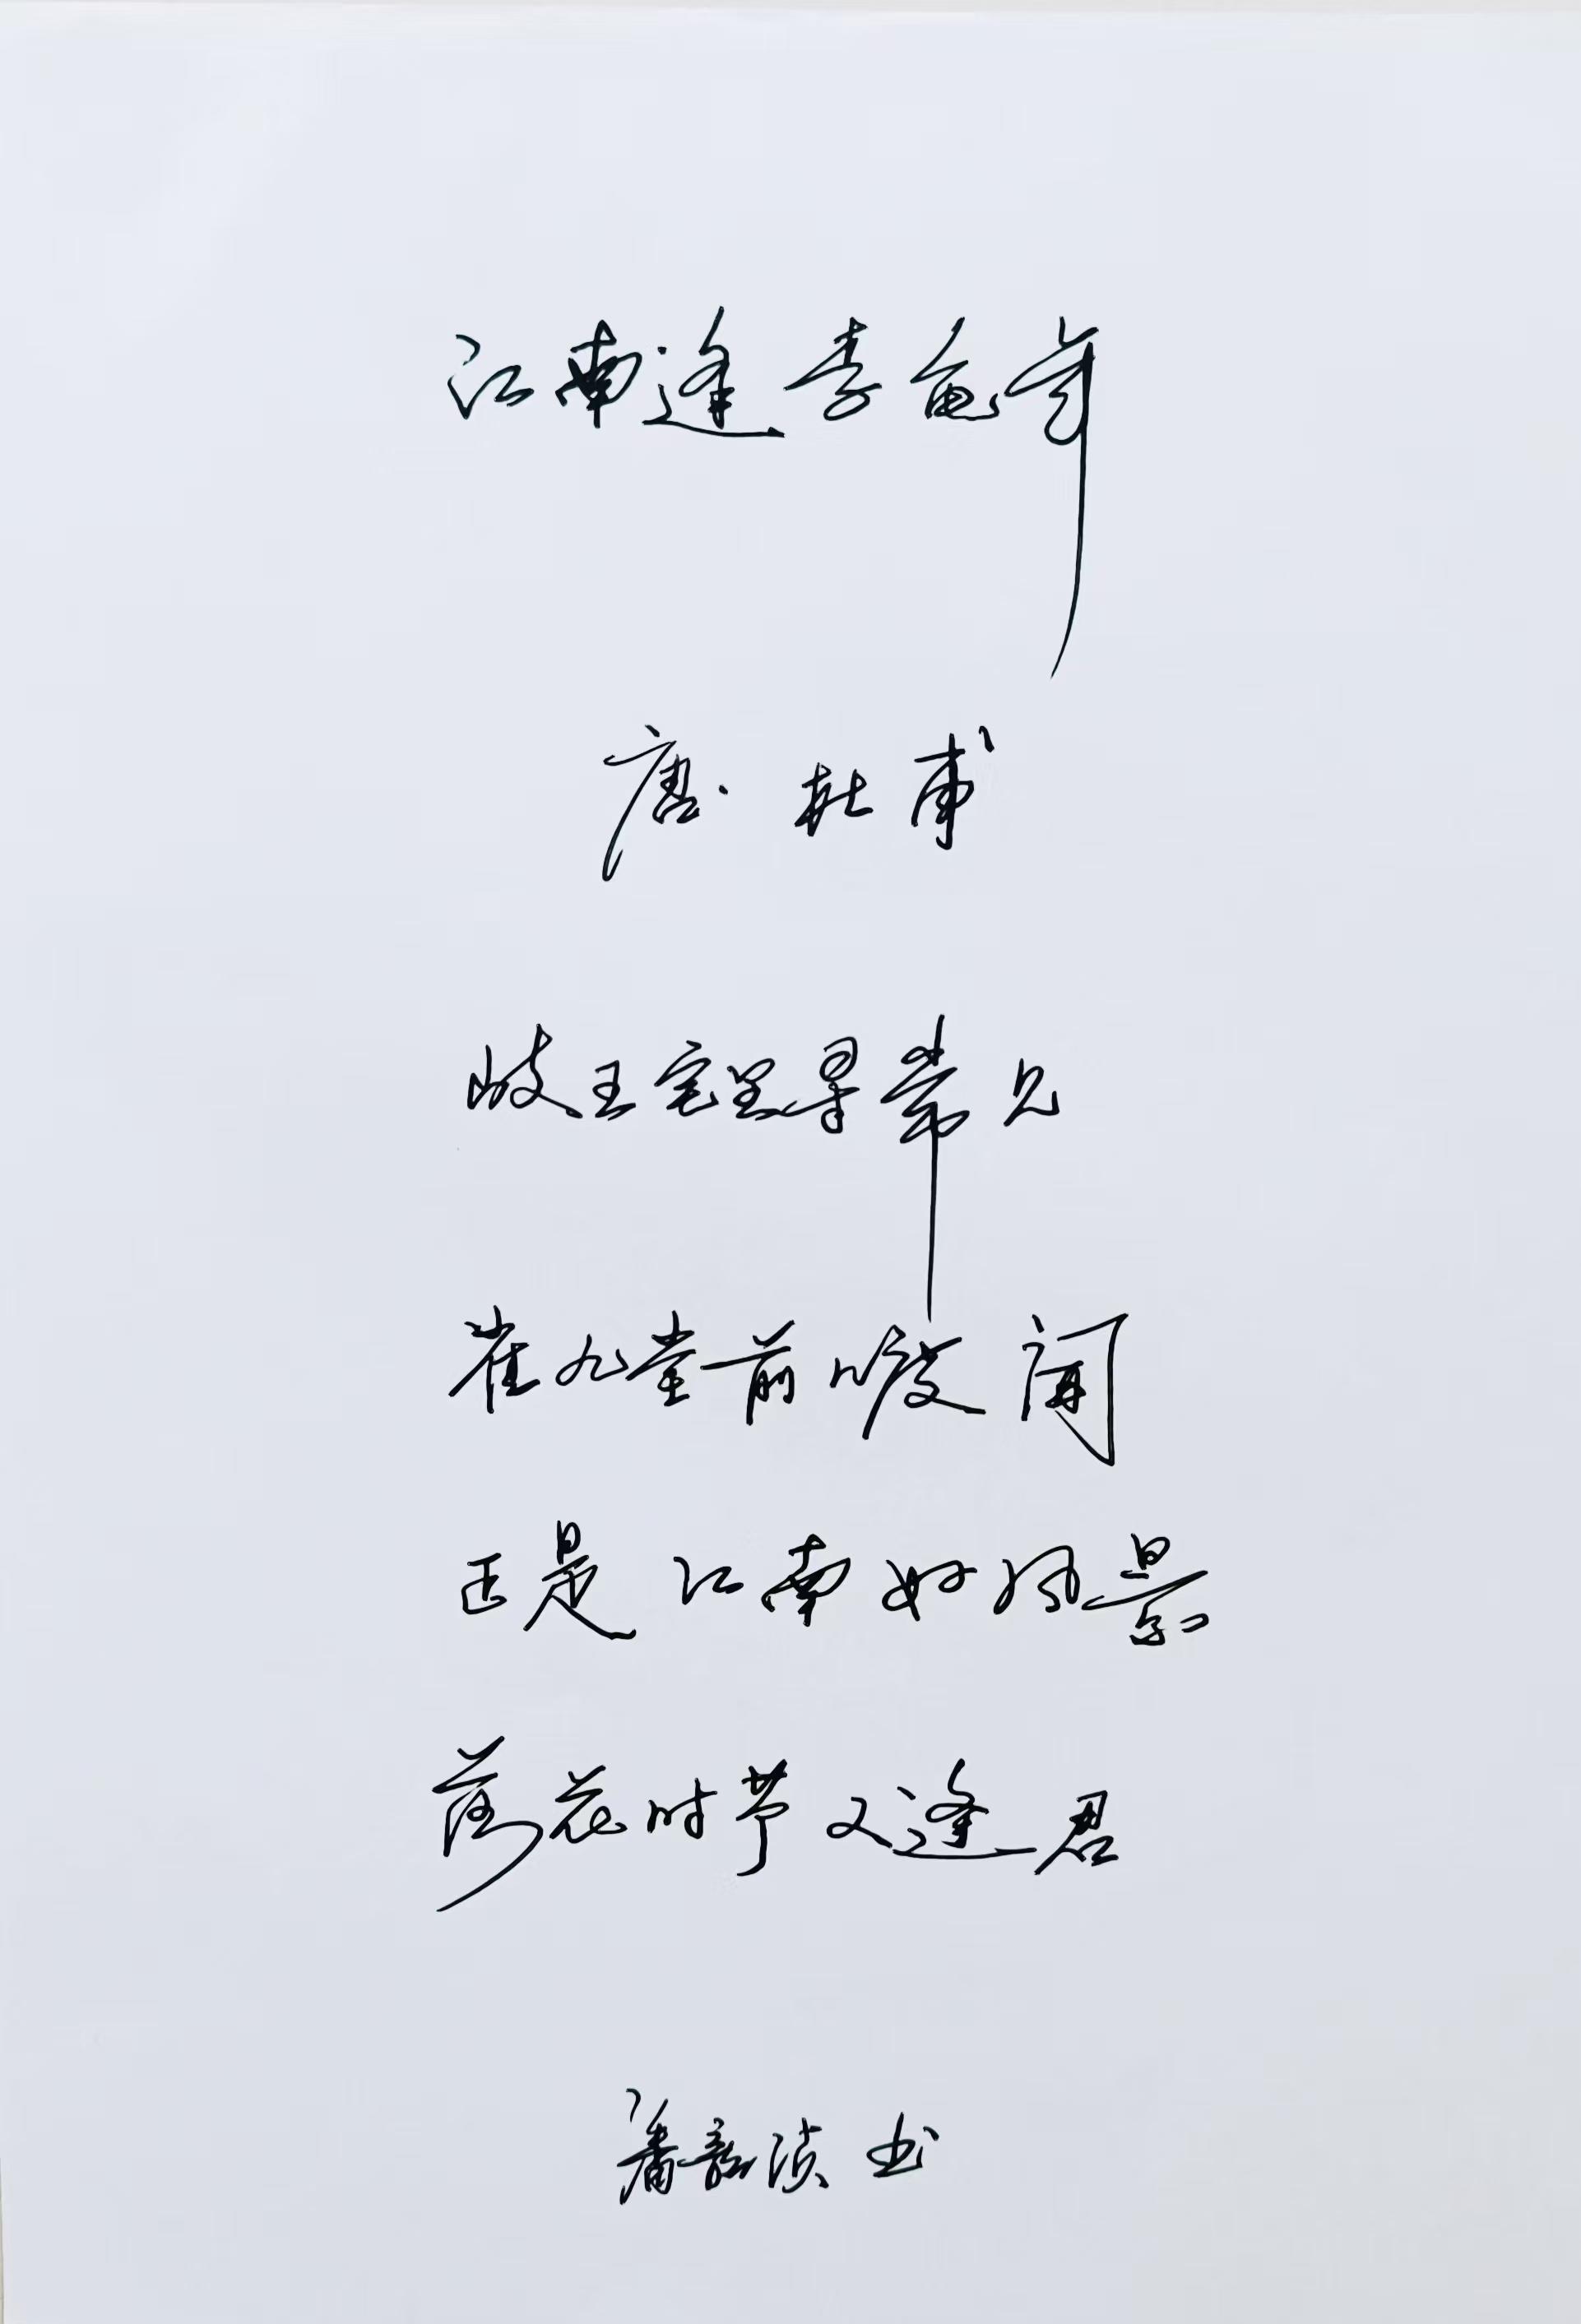 江南逢李龟年
唐·杜甫
岐王宅里寻常见
崔九堂前几度闻
正是江南好风景
落花时节又逢君
潘 书